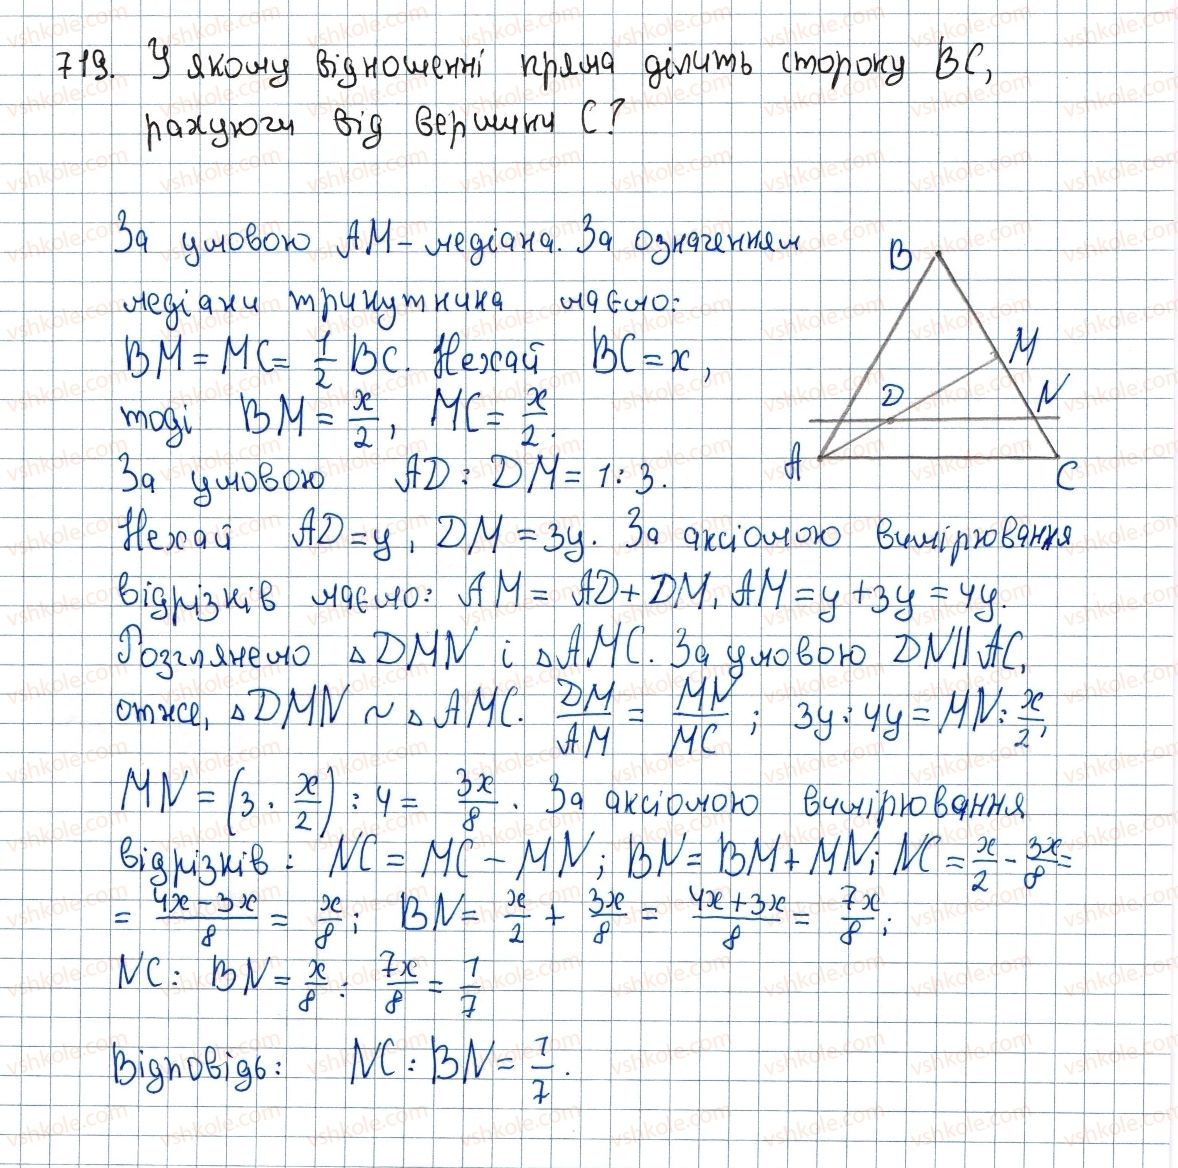 719. У якому відношенні пряма ділить сторону BC,
рахуючи від вершини C?
За умовою AM - медіана. За означенням
медіани трикутника маємо:
BM = MC = 1/2 BC. Нехай BC = x,
тоді BM = x/2, MC = x/2.
За умовою AD : DM = 1 : 3.
Нехай AD = y, DM = 3y. За аксіомою вимірювання
відрізків маємо: AM = AD + DM, AM = y + 3y = 4y.
Розглянемо △DMN і △AMC. За умовою DN || AC,
отже, △DMN ~ △AMC. DM/AM = MN/MC; 3y : 4y = MN : x/2,
MN = (3 · x/2) : 4 = 3x/8. За аксіомою вимірювання
відрізків: NC = MC - MN; BN = BM + MN; NC = x/2 - 3x/8 =
= (4x - 3x)/8 = x/8; BN = x/2 + 3x/8 = (4x + 3x)/8 = 7x/8;
NC : BN = x/8 : 7x/8 = 1/7
Відповідь: NC : BN = 1/7.
B
M
D
N
A
C
vshkole.com